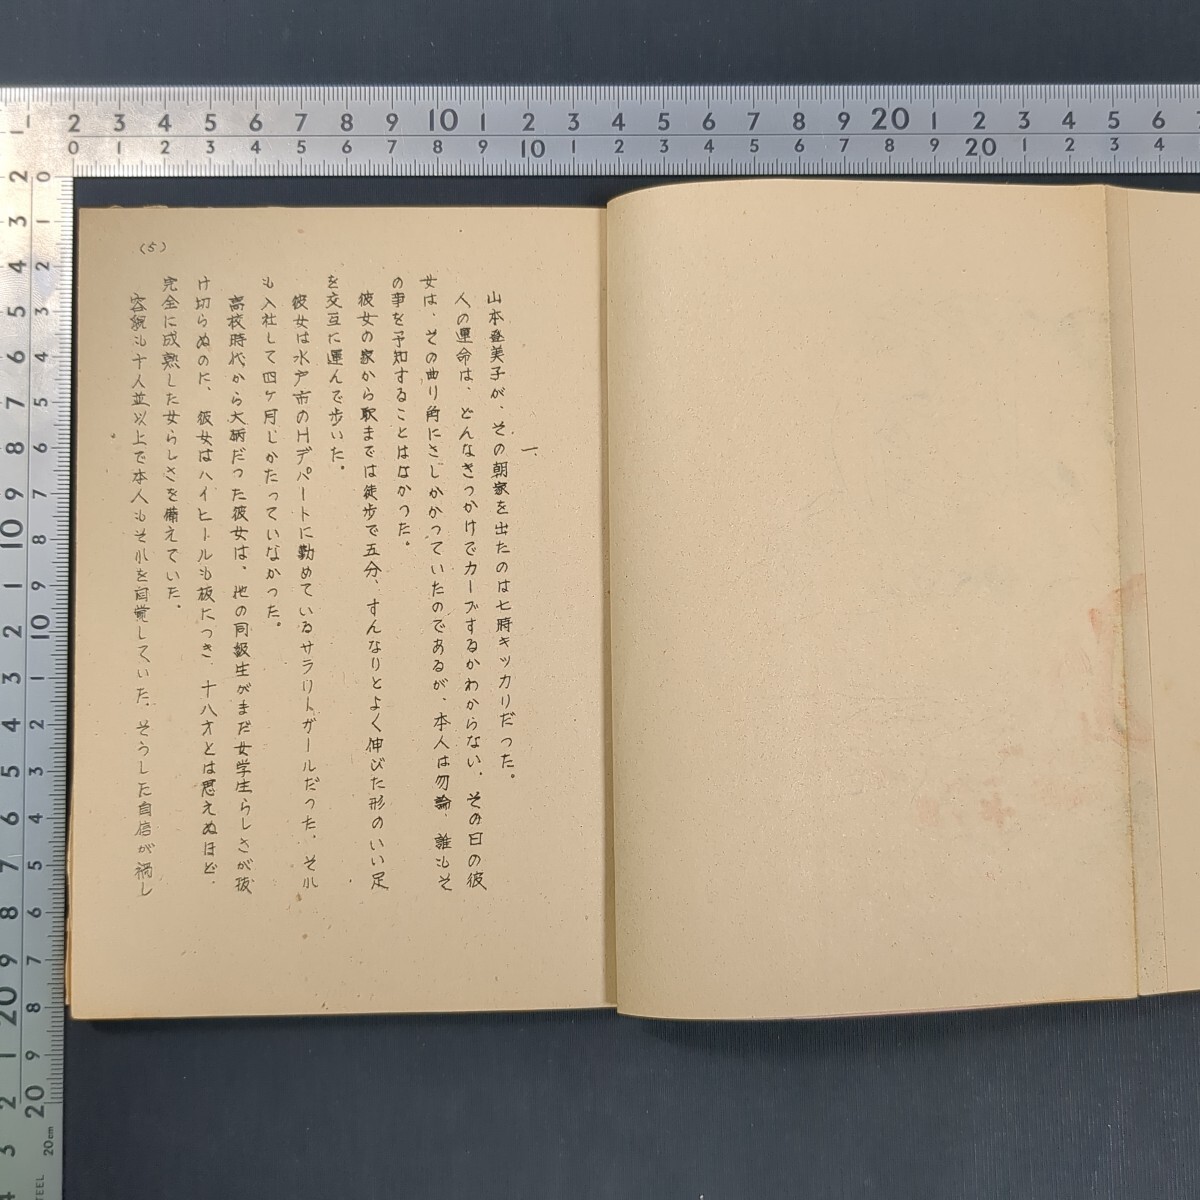 一、
山本登美子が、その朝家を出たのは七時キッカリだった。
人の運命は、どんなきっかけでカーブするかわからない。その日の彼
女は、その曲り角にさしかかっていたのであるが、本人は勿論、誰もそ
の事を予知することはなかった。
彼女の家から駅までは徒歩で五分、すんなりとよく伸びた形のいい足
を交互に運んで歩いた。
彼女は水戸市のHデパートに勤めているサラリトガールだった。それ
も入社して四ヶ月しかたっていなかった。
高校時代から大柄だった彼女は、他の同級生がまだ女学生らしさが抜
け切らぬのに、彼女はハイヒールも板につき、十八才とは思えぬほど、
完全に成熟した女らしさを備えていた。
容貌も十人並以上で本人もそれを自覚していた。そうした自信が禍し
(5)
2 3 4 5 6 7 8 9 10 1 2 3 4 5 6 7 8 9 20 1 2 3 4 5 6 7
0 1 2 3 4 5 6 7 8 9 10 1 2 3 4 5 6 7 8 9 20 1 2 3 4
2 3 4 5 6 7 8 9 10 1 2 3 4 5 6 7 8 9 20 1 2 3 4
0 1 2 3 4 5 6 7 8 9 10 1 2 3 4 5 6 7 8 9 20
20cm